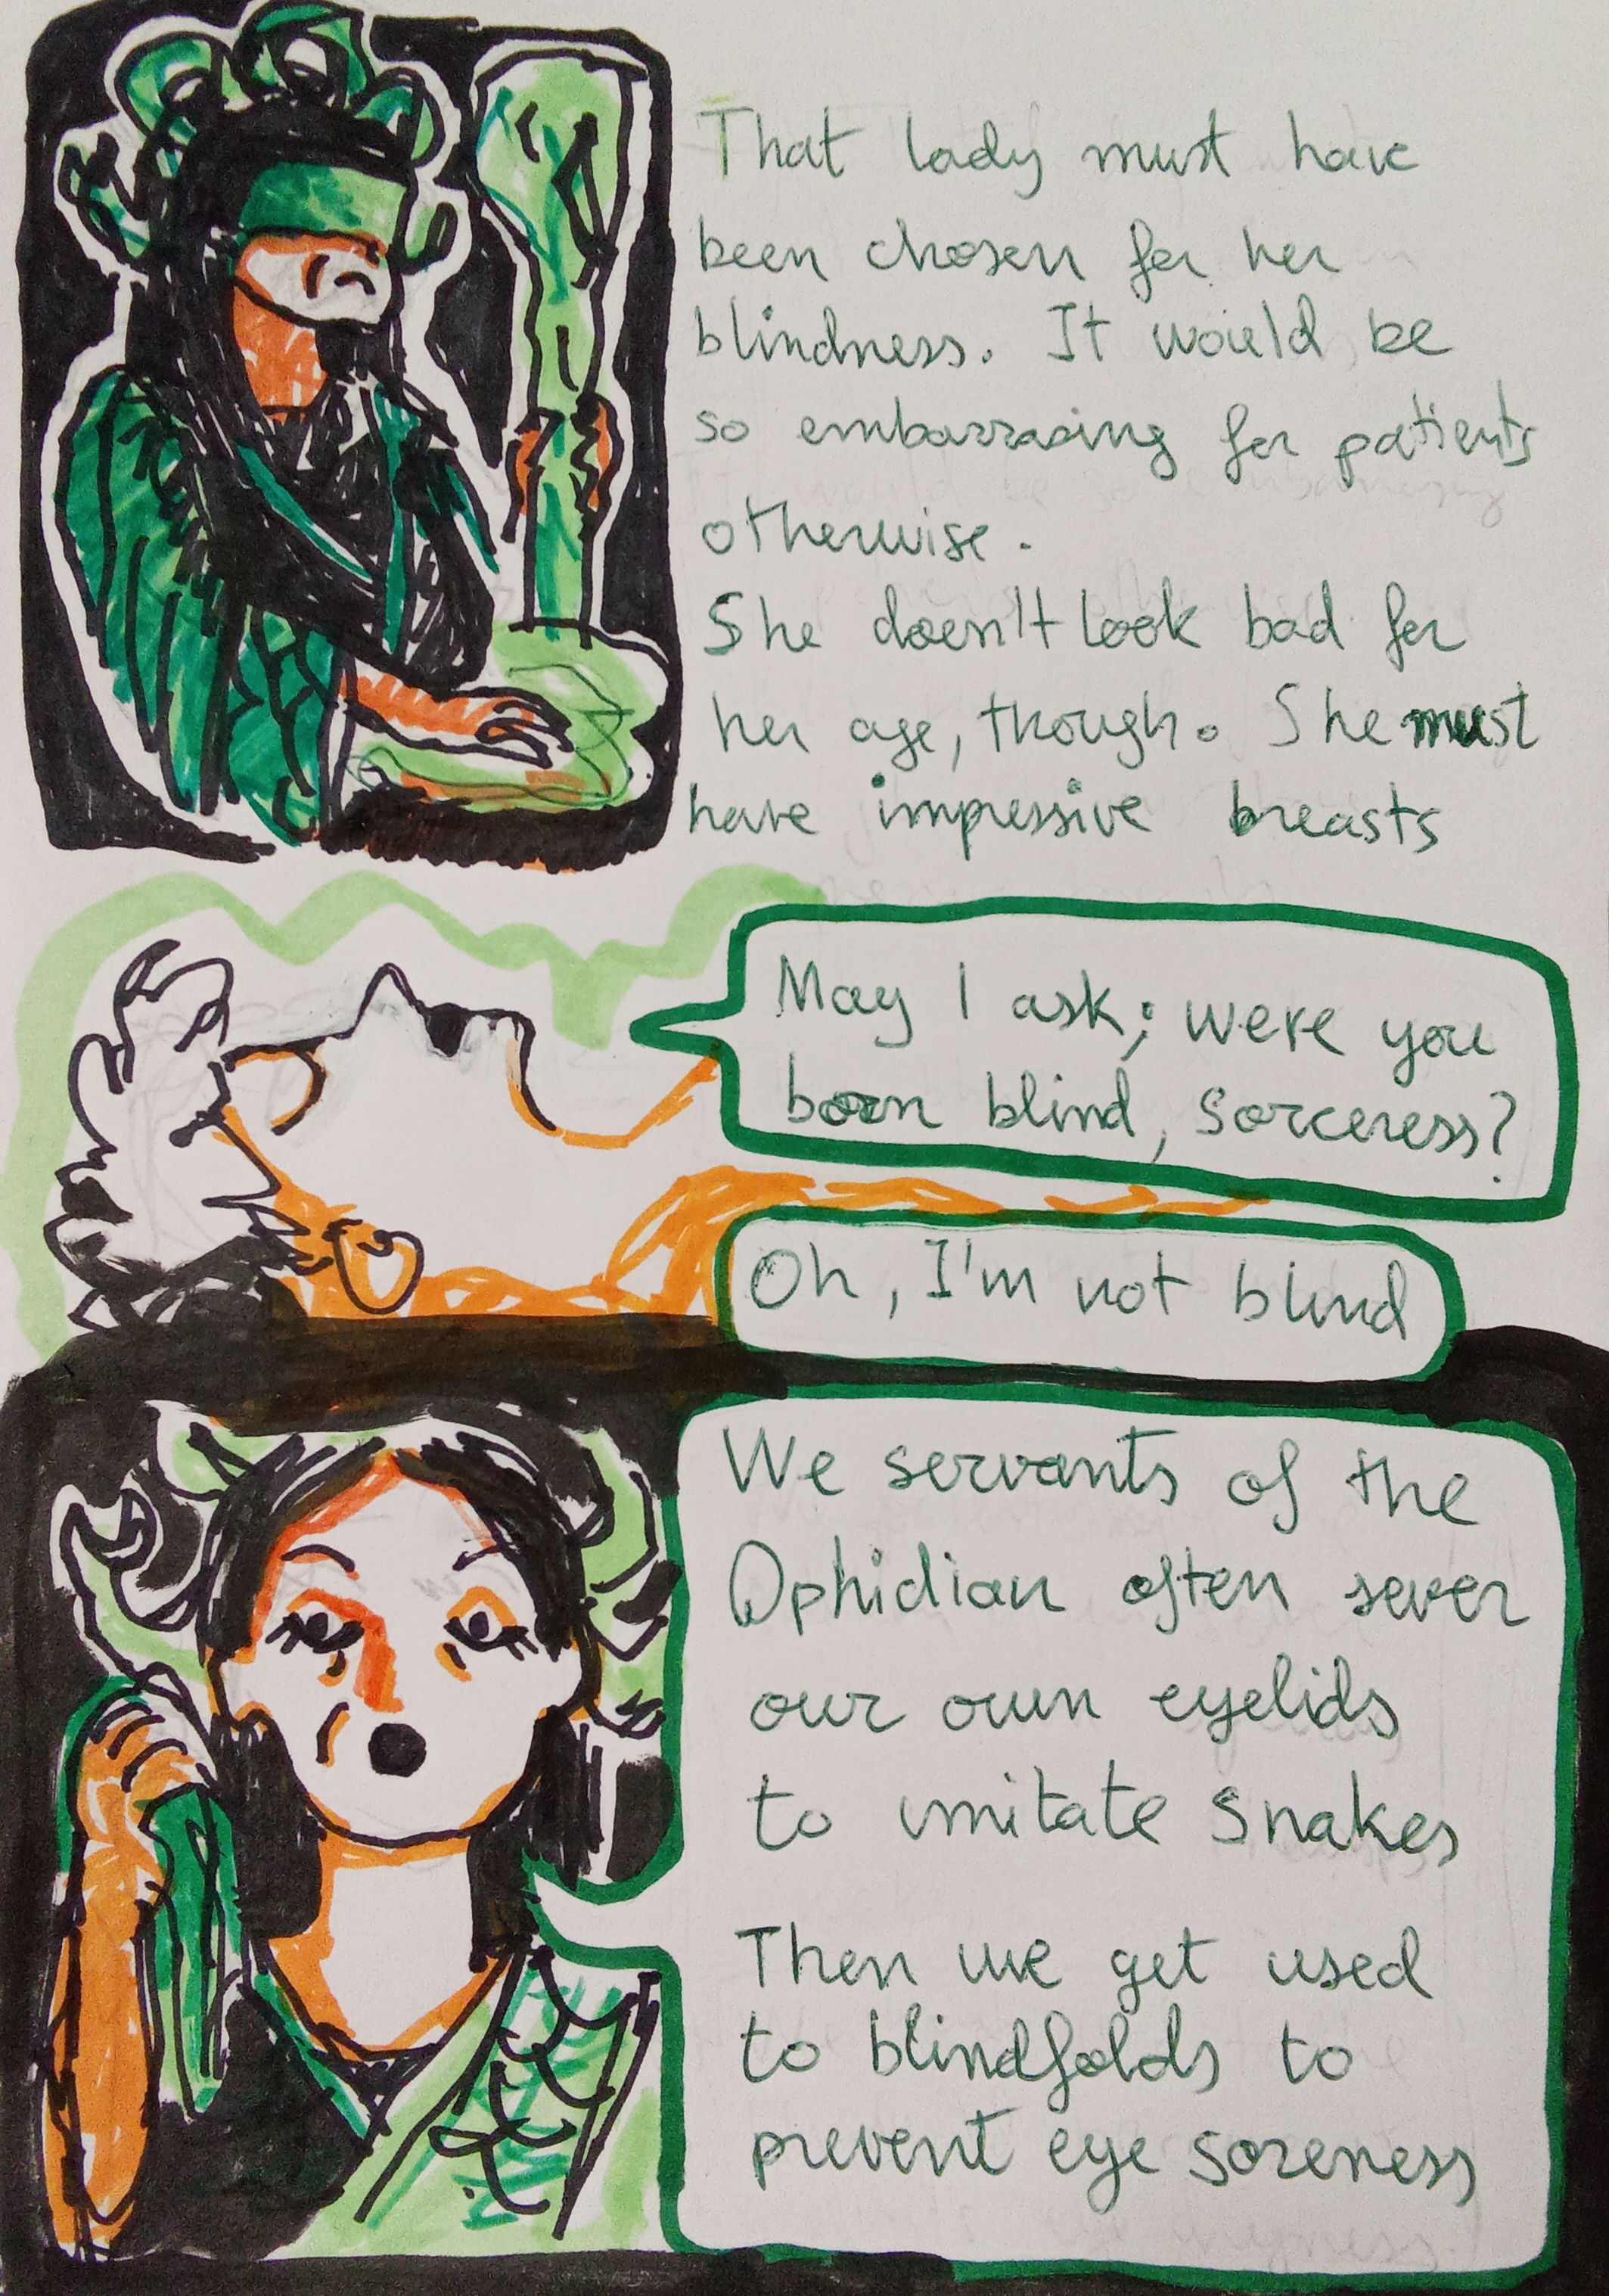 That lady must have
been chosen for her
blindness. It would be
so embarrasing for patients
otherwise.
She doesn't look bad for
her age, though. She must
have impressive breasts
May I ask; were you
born blind, sorceress?
Oh, I'm not blind
We servants of the
Ophidian often sever
our own eyelids
to imitate snakes
Then we get used
to blindfolds to
prevent eye soreness